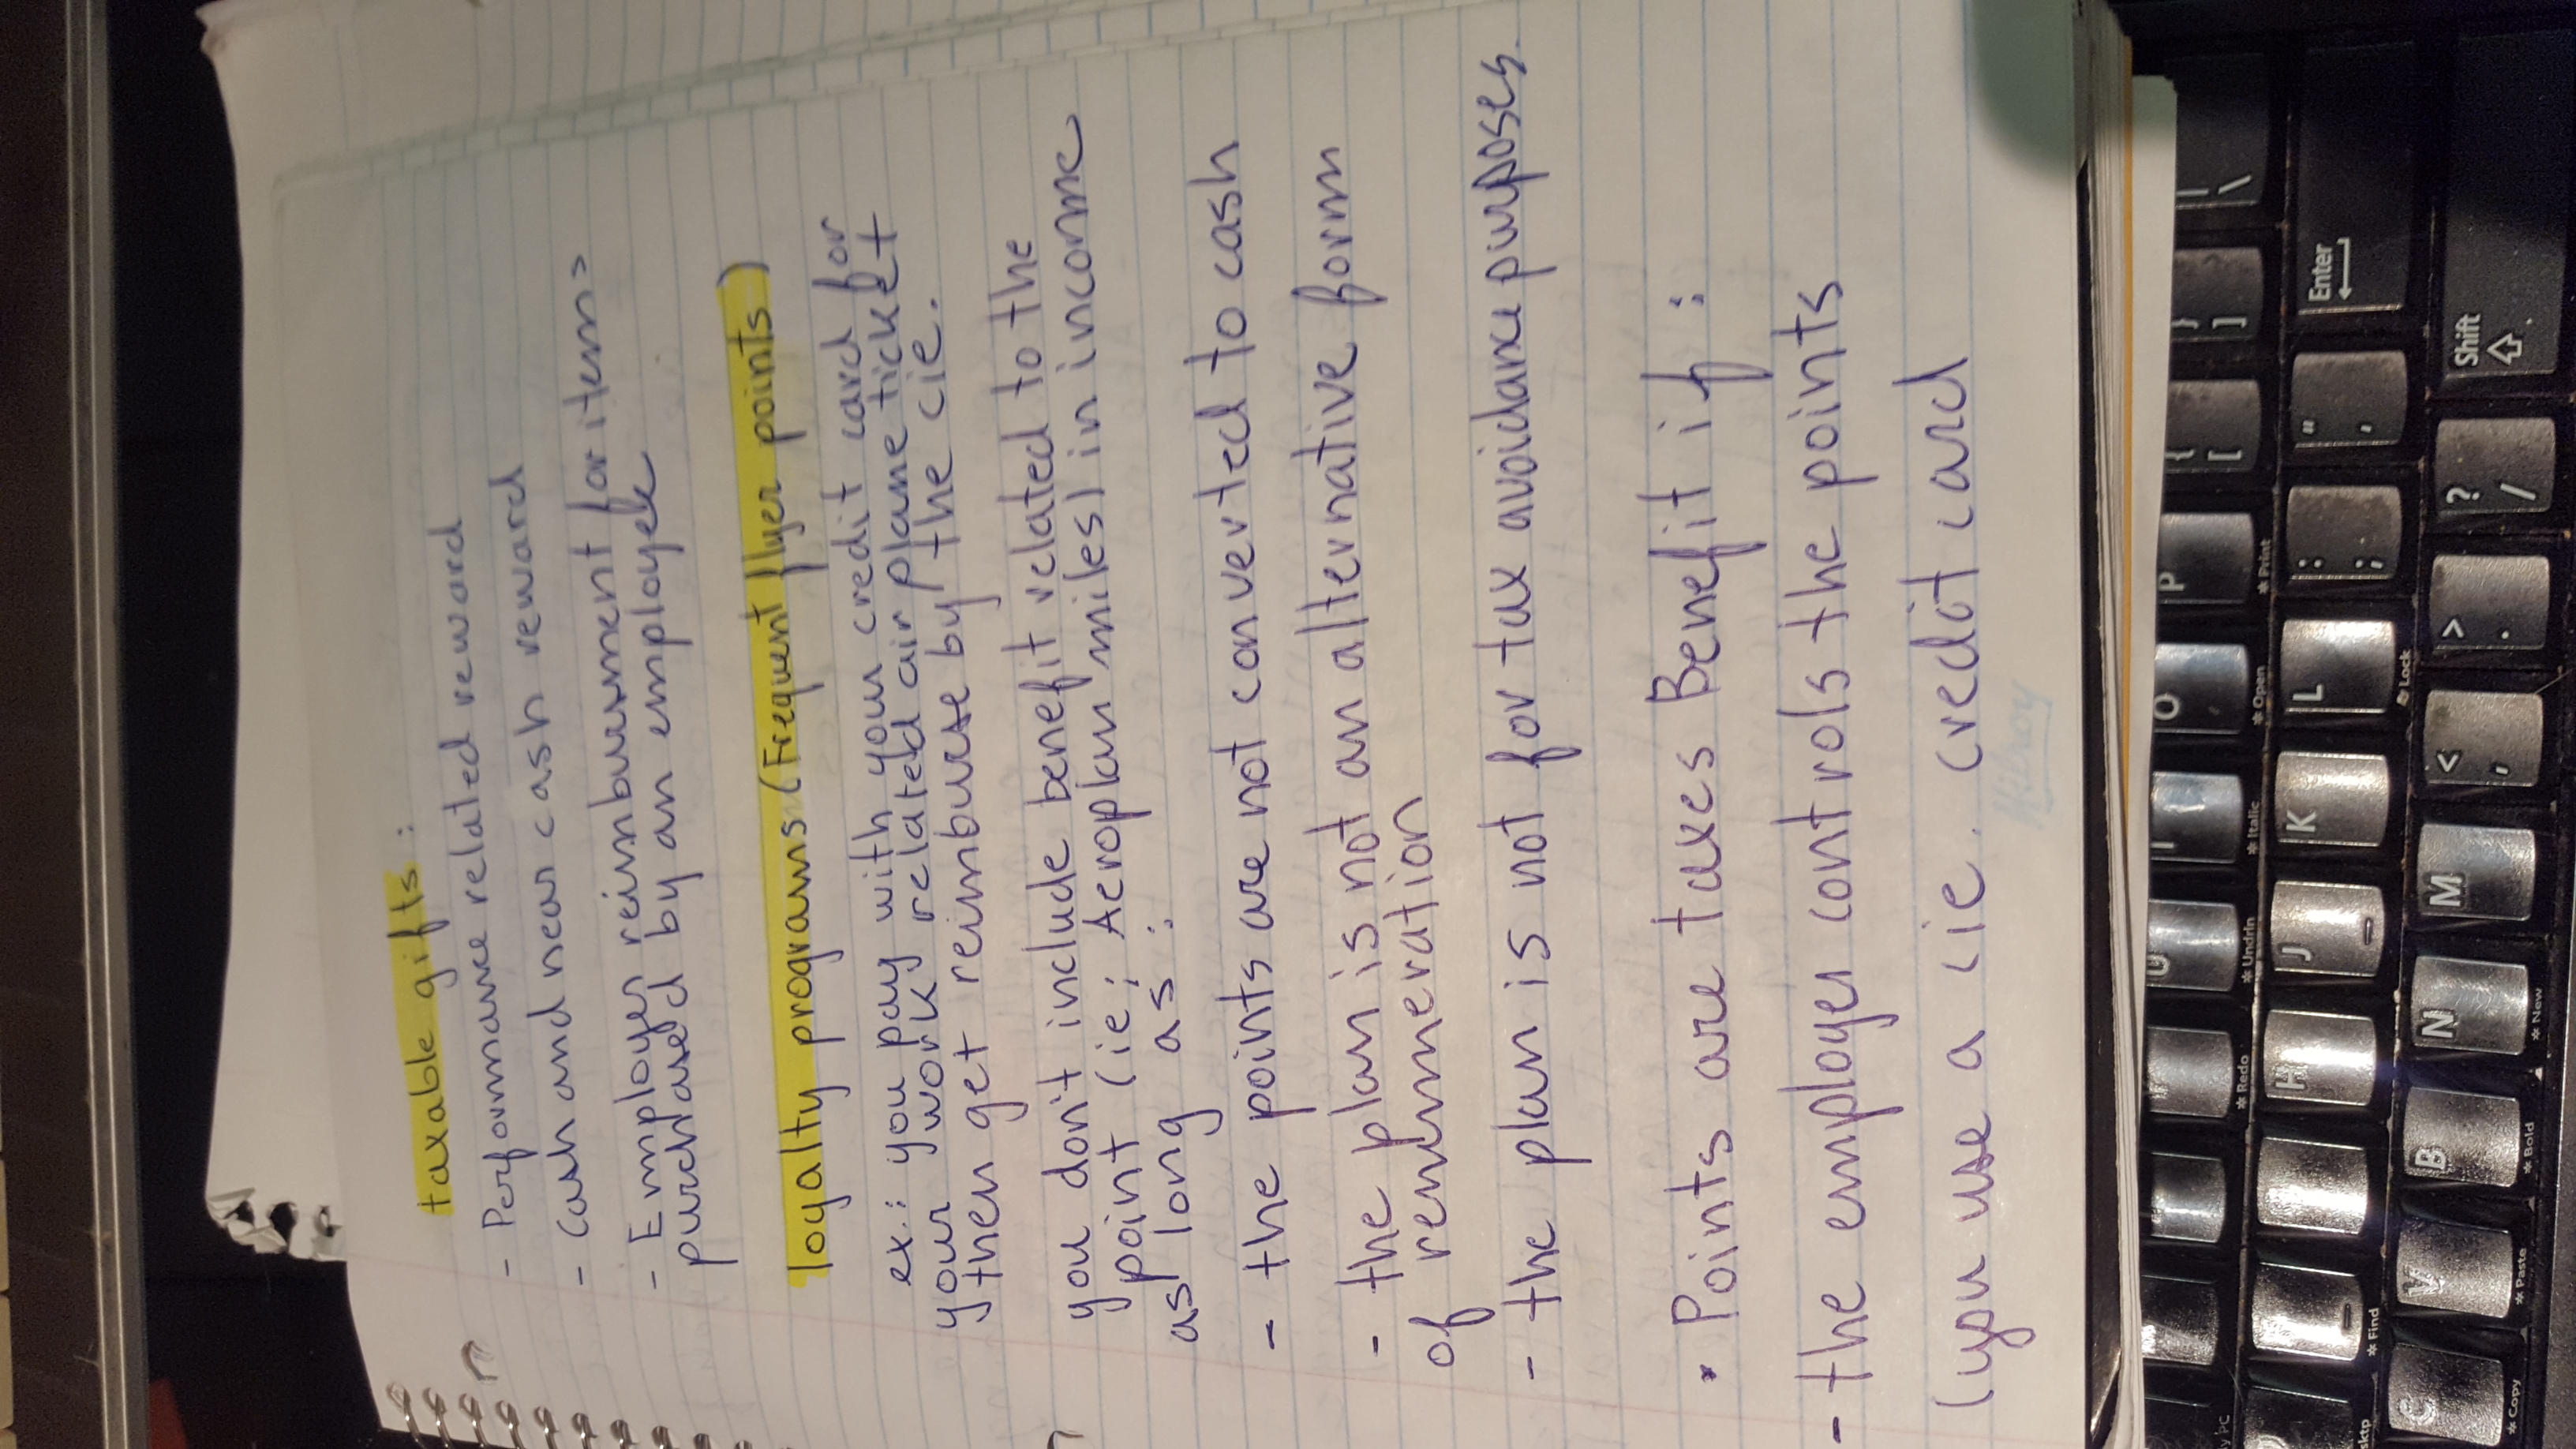 taxable gifts:
- Performance related reward
- Cash and near cash reward
- Employer reimbursement for items
purchased by an employee
loyalty programs (Frequent flyer points)
ex.: you pay with your credit card for
your work related air plane ticket
then get reimburse by the cie.
you don't include benefit related to the
point (ie: Aeroplan miles) in income
as long as:
- the points are not converted to cash
- the plan is not an alternative form
of remumeration
- the plan is not for tax avoidance purposes.
• Points are taxes Benefit if:
- the employer controls the points
(you use a cie. credit card
Hilroy
Enter
Shift
{ [
} ]
| \
" '
: ;
? /
> .
< ,
P
O
L
K
J
H
M
N
B
V
C
* Print
* Open
* Lock
* Italic
* Undrln
* Redo
* Find
* New
* Bold
* Paste
* Copy